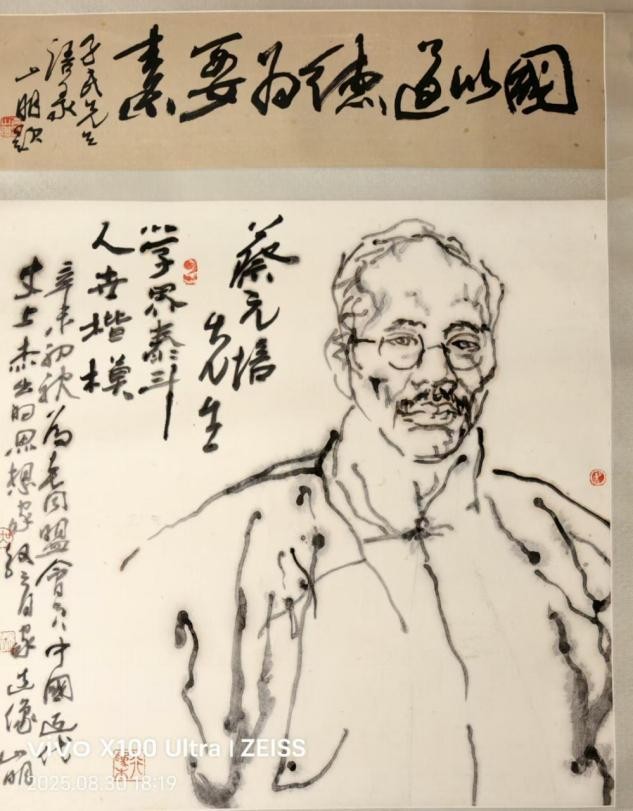 國以道德為要素
孑民先生
語錄
山明題
蔡元培
先生
學界泰斗
人世楷模
辛未初秋為老同盟會員中國近代
史上杰出的思想家教育家造像山明
vivo X100 Ultra | ZEISS
2025.08.30 18:19